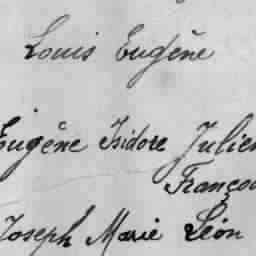 Louis Eugène
Eugène Isidore Julien
Françoi
Joseph Marie Léon